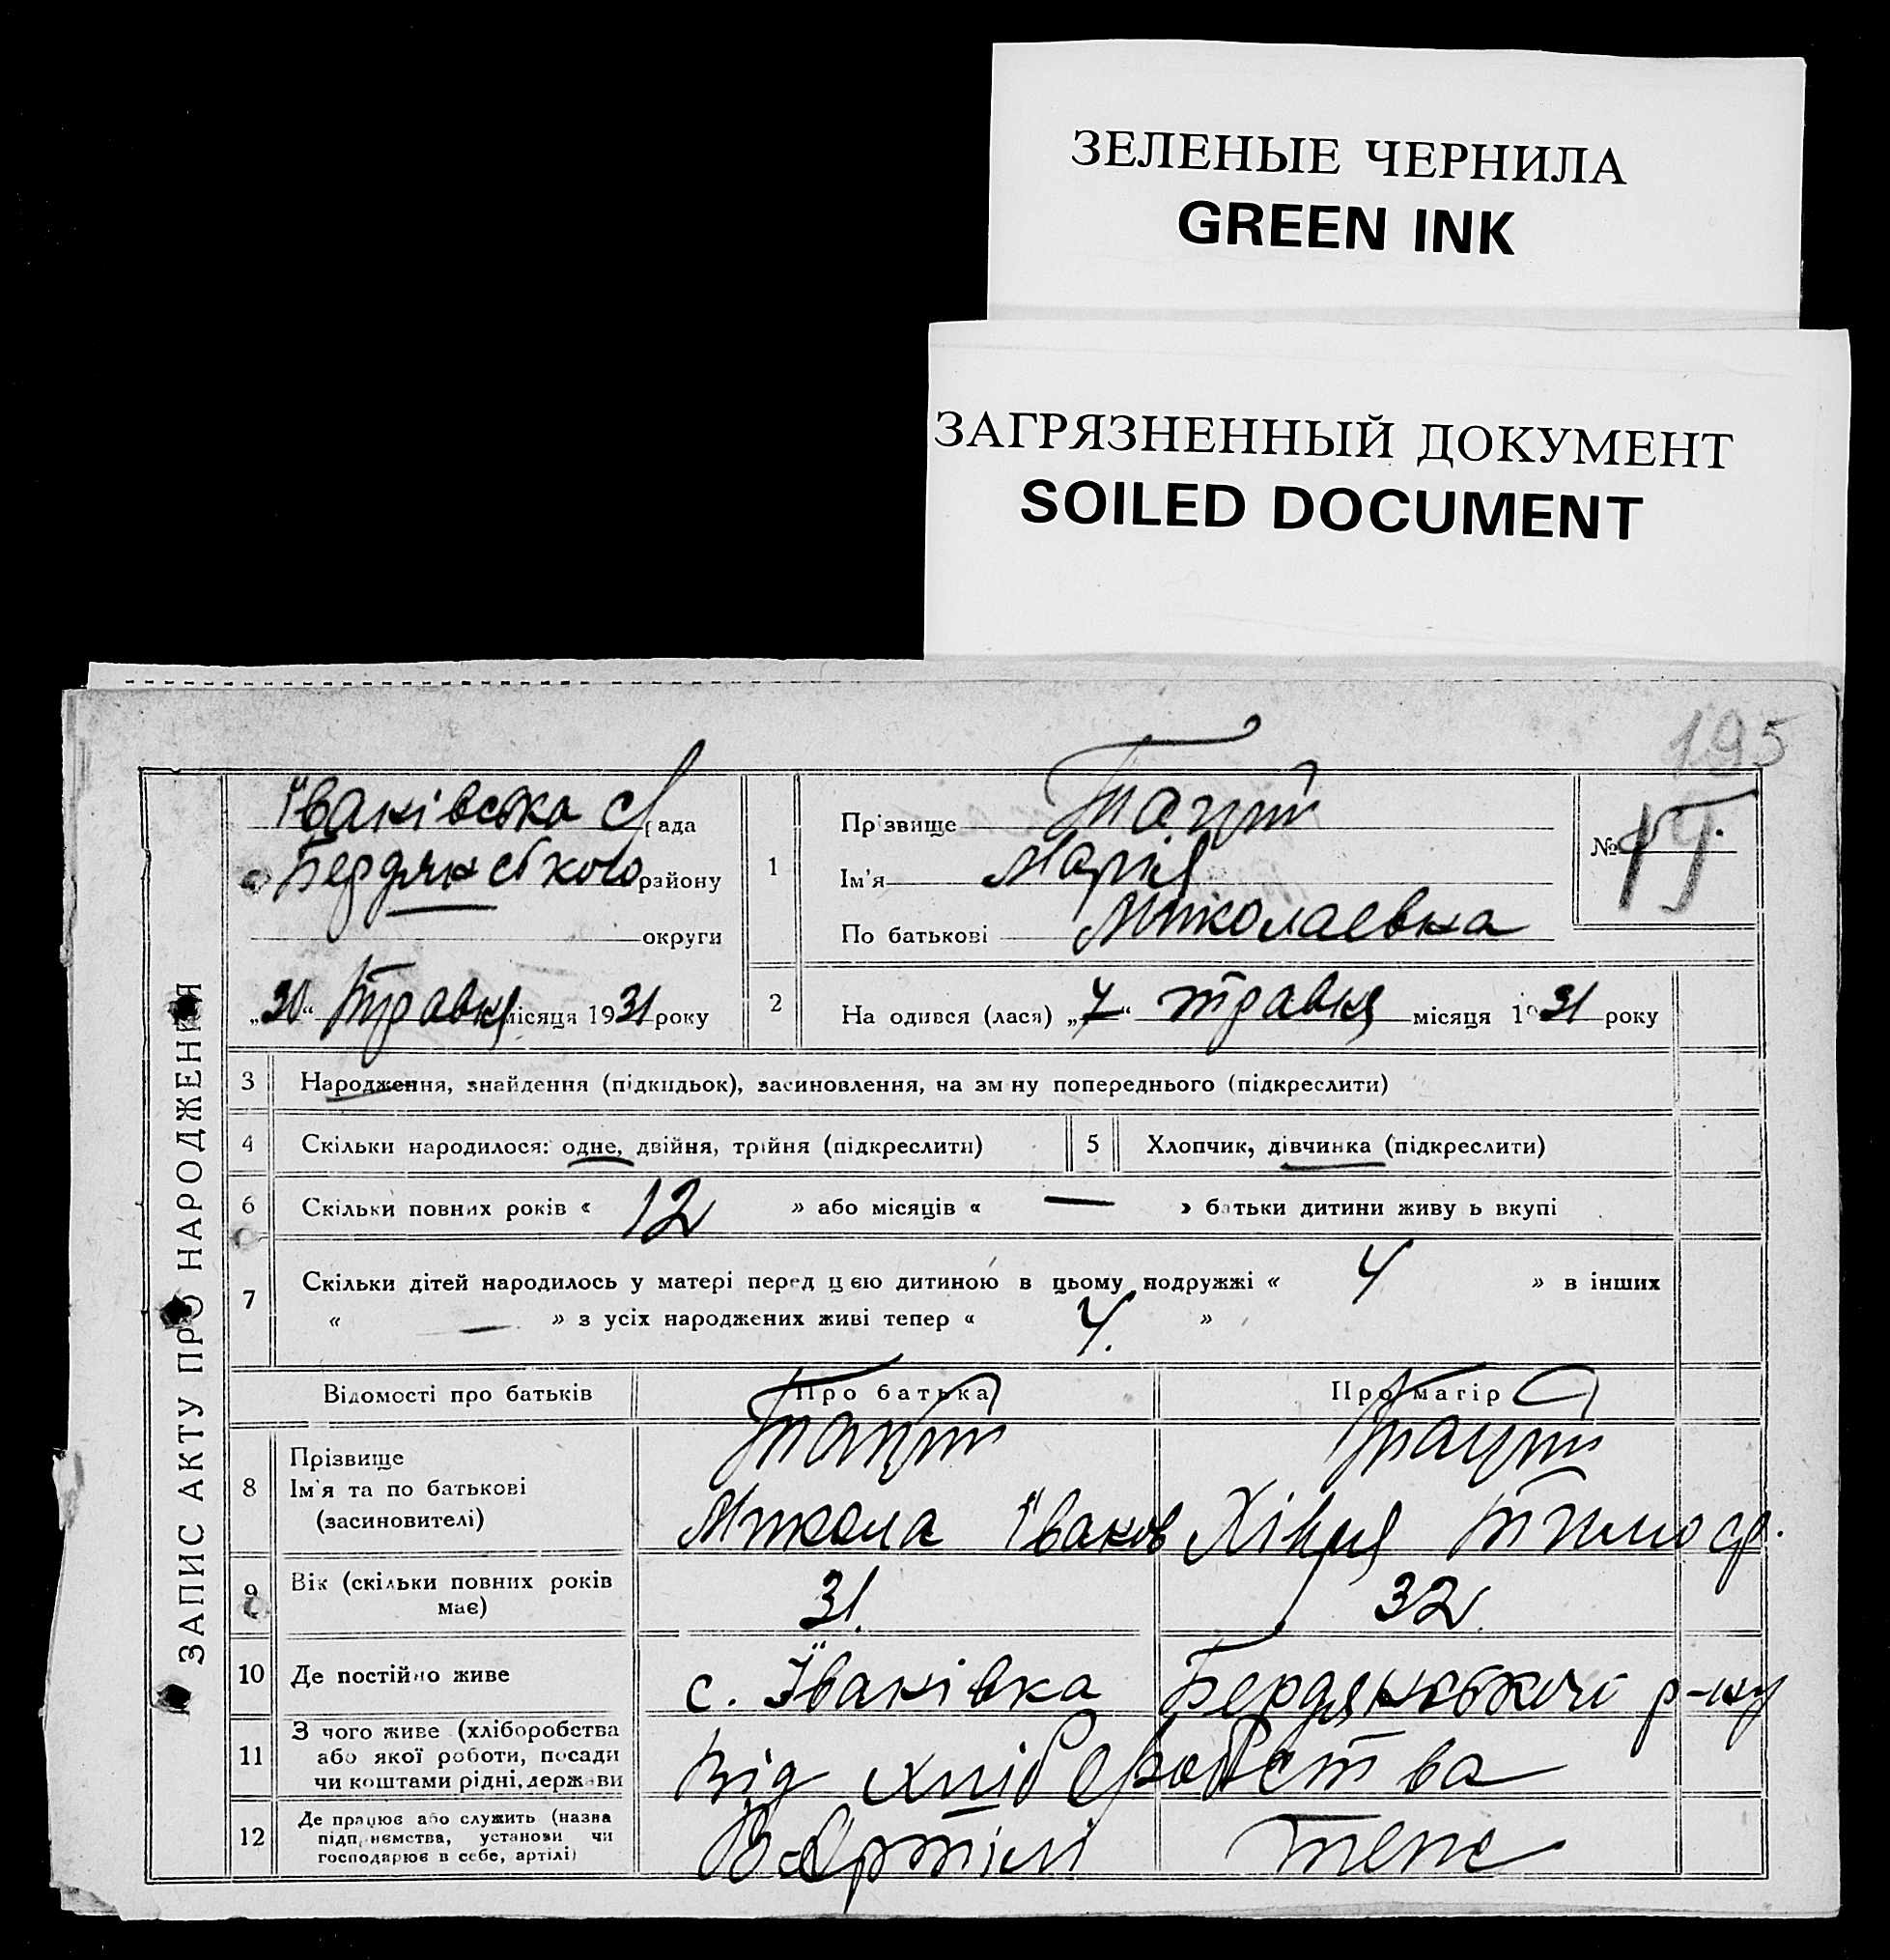 ЗЕЛЕНЫЕ ЧЕРНИЛА
GREEN INK
ЗАГРЯЗНЕННЫЙ ДОКУМЕНТ
SOILED DOCUMENT
195
ЗАПИС АКТУ ПРО НАРОДЖЕННЯ
Іванівська с рада
Бердянського району
округи
„30“ травня місяця 1931 року
1
Прізвище
Ім'я Марія
По батькові Миколаевна
№
2 На одився (лася) „7“ травня місяця 1931 року
3 Народження, знайдення (підкидьок), засиновлення, на зм ну попереднього (підкреслити)
4 Скільки народилося: одне, двійня, трійня (підкреслити) 5 Хлопчик, дівчинка (підкреслити)
6 Скільки повних років « 12 » або місяців « — » батьки дитини живу ь вкупі
7 Скільки дітей народилось у матері перед цією дитиною в цьому подружжі « 4 » в інших
« — » з усіх народжених живі тепер « 4. »
Відомості про батьків Про батька Про матір
8 Прізвище
Ім'я та по батькові Микола Іванов Тимоф.
(засиновителі)
9 Вік (скільки повних років має) 31. 32.
10 Де постійно живе с. Іванівка Бердянського р-ну
11 З чого живе (хліборобства
або якої роботи, посади
чи коштами рідні, держави Від хліборобства
12 Де працює або служить (назва
підприємства, установи чи
господарює в себе, артілі) В Артілі теж